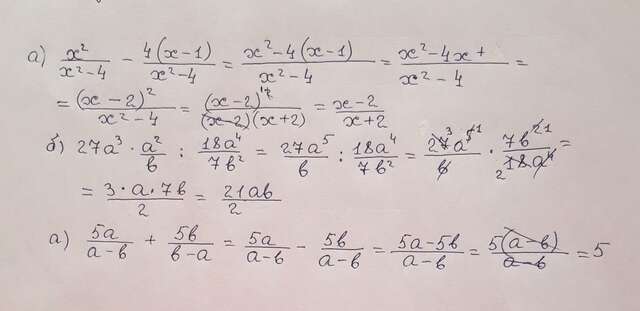 а) x²/(x²-4) - 4(x-1)/(x²-4) = (x²-4(x-1))/(x²-4) = (x²-4x+)/(x²-4) =
= (x-2)²/(x²-4) = (x-2)²/((x-2)(x+2)) = (x-2)/(x+2)
б) 27a³ · a²/b : 18a⁴/7b² = 27a⁵/b : 18a⁴/7b² = 27³a⁵¹/b · 7b²¹/₂18a⁴ =
= (3·a·7b)/2 = 21ab/2
а) 5a/(a-b) + 5b/(b-a) = 5a/(a-b) - 5b/(a-b) = (5a-5b)/(a-b) = 5(a-b)/(a-b) = 5